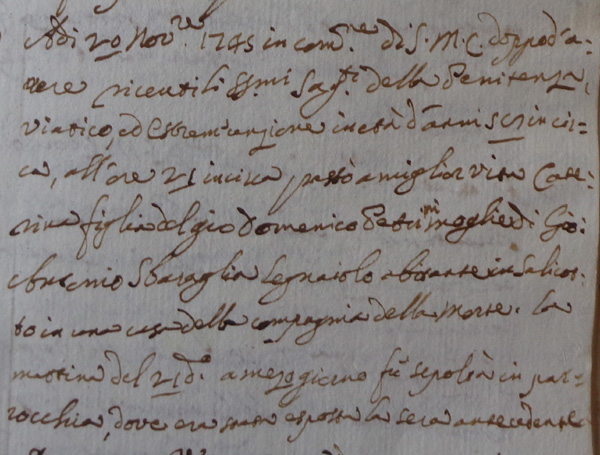 Adi 20 Nov.re 1745 in com.ne di S. M. C. doppo d'a=
vere ricevuti li SS.mi Sag.ti della Penitenza,
Viatico, ed Estrem'unzione in età d'anni in cir=
ca, all'ore 21 in circa passò a miglior vita Cate=
rina figlia del gio Domenico moglie di Gio:
Antonio Sbaraglia Legnaiolo abitante in Salicot=
to in una casa della Compagnia della Morte. la
mattina del 21 d.o a mezo giorno fù sepolta in par=
rocchia, dove era stata esposta la sera antecedente